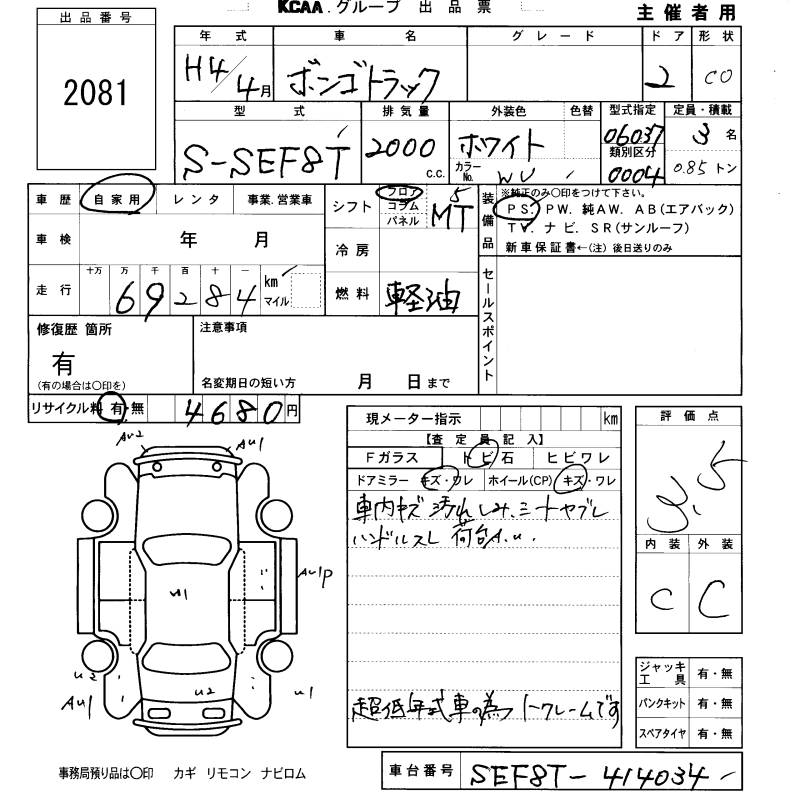 KCAA.グループ 出品票
主催者用
出品番号
2081
年式 車名 グレード ドア 形状
H4/4月 ボンゴトラック 2 CO
型式 排気量 外装色 色替 型式指定 定員・積載
S-SEF8T 2000 c.c. ホワイト 06037 3名
カラーNo. WU 類別区分 0004 0.85トン
車歴 自家用 レンタ 事業.営業車
シフト フロア コラム パネル 5 MT
装備品 ※純正のみ〇印をつけて下さい。
PS. PW. 純AW. AB(エアバック)
TV. ナビ. SR(サンルーフ)
新車保証書←(注)後日送りのみ
車検 年 月
冷房
セールスポイント
走行 十万 万 千 百 十 一
69284 km マイル
燃料 軽油
修復歴 箇所
有
(有の場合は〇印を)
注意事項
名変期日の短い方 月 日まで
リサイクル料 有・無 4680円
現メーター指示 km
【査定員記入】
Fガラス トビ石 ヒビワレ
ドアミラー キズ・ワレ ホイール(CP) キズ・ワレ
車内キズ 汚れ しみ、シートヤブレ
ハンドルスレ 荷台A.u.
超低年式車の為 ノークレームです
評価点
3.5
内装 外装
C C
Au2 Au1
Au1p
u1
u2 Au1 u2 u1
ジャッキ工具 有・無
パンクキット 有・無
スペアタイヤ 有・無
事務局預り品は〇印 カギ リモコン ナビロム
車台番号 SEF8T-414034